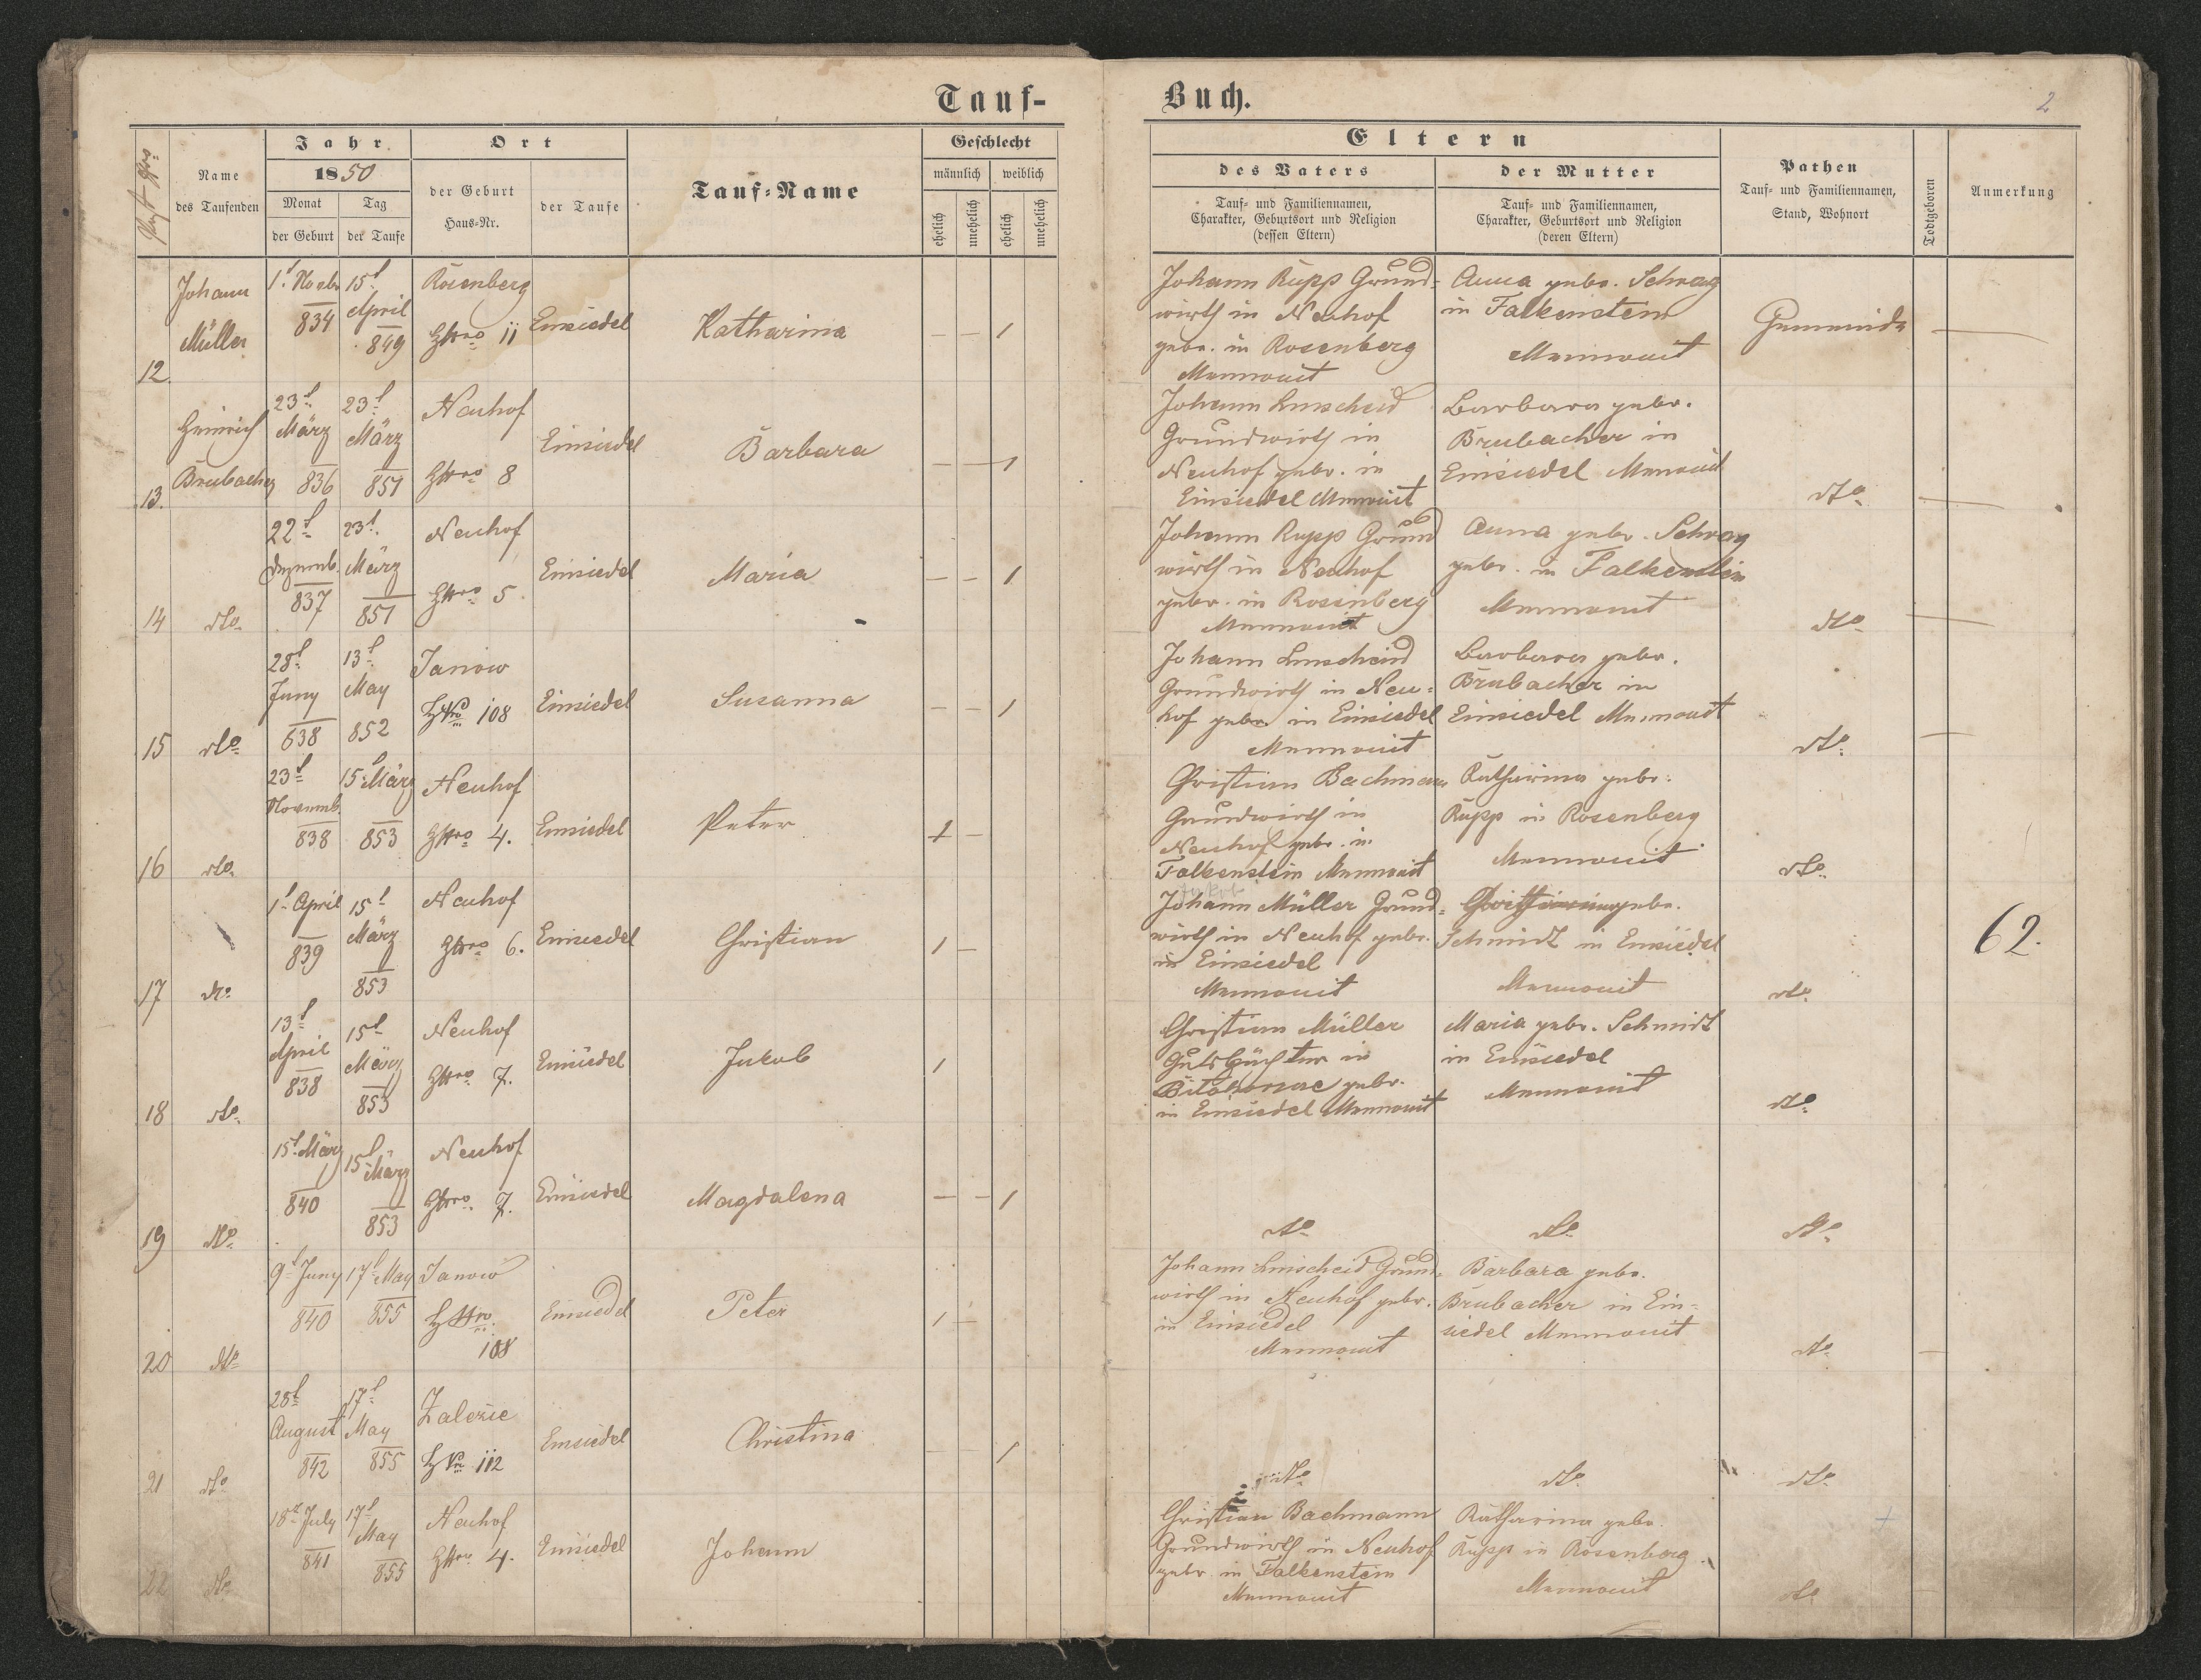 Tauf-Buch.
2
Post Nro.
Name des Taufenden
Jahr
1850
Monat der Geburt
Tag der Taufe
Ort
der Geburt Haus-Nr.
der Taufe
Tauf-Name
Geschlecht
männlich weiblich
ehelich unehelich ehelich unehelich
Eltern
des Vaters
Tauf- und Familiennamen,
Charakter, Geburtsort und Religion
(dessen Eltern)
der Mutter
Tauf- und Familiennamen,
Charakter, Geburtsort und Religion
(deren Eltern)
Pathen
Tauf- und Familiennamen,
Stand, Wohnort
Todtgeboren
Anmerkung
12. Johann Müller
1t Novbr 834
15t April 849
Rosenberg HNro 11
Einsiedel
Katharina
— — 1
Johann Rupp Grund-
wirth in Neuhof
gebr. in Rosenberg
Mennonit
Anna gebr. Schrag
in Falkenstein
Mennonit
Gemeinde
13. Heinrich Brubacher
23t März 836
23t März 851
Neuhof HNro 8
Einsiedel
Barbara
— — 1
Johann Linscheid
Grundwirth in
Neuhof gebr. in
Einsiedel Mennonit
Barbara gebr.
Brubacher in
Einsiedel Menonit
dto
14 dto
22t Dezemb. 837
23t März 851
Neuhof HNro 5
Einsiedel
Maria
— — 1
Johann Rupp Grund
wirth in Neuhof
gebr. in Rosenberg
Mennonit
Anna gebr. Schrag
gebr. in Falkenstein
Mennonit
dto
15 dto
28t Juny 838
13t May 852
Janow HNro 108
Einsiedel
Susanna
— — 1
Johann Linscheid
Grundwirth in Neu-
hof gebr. in Einsiedel
Mennonit
Barbara gebr.
Brubacher in
Einsiedel Mennonit
dto
16 dto
23t Novemb. 838
15t März 853
Neuhof HNro 4.
Einsiedel
Peter
1 —
Christian Bachmann
Grundwirth in
Neuhof gebr. in
Falkenstein Mennonit
Katharina gebr.
Rupp in Rosenberg
Mennonit
dto
17 dto
1t April 839
15t März 853
Neuhof HNro 6.
Einsiedel
Christian
1 —
Jakob
Johann Müller Grund-
wirth in Neuhof gebr.
in Einsiedel
Mennonit
gebr.
Schmidt in Einsiedel
Mennonit
dto
62.
18 dto
13t April 838
15t März 853
Neuhof HNro 7.
Einsiedel
Jakob
1
Christian Müller
Gutspächter in
gebr.
in Einsiedel Mennonit
Maria gebr. Schmidt
in Einsiedel
Mennonit
dto
19 dto
15t März 840
15t März 853
Neuhof HNro 7.
Einsiedel
Magdalena
— — 1
dto
dto
dto
20 dto
9t Juny 840
17t May 855
Janow HNro 108
Einsiedel
Peter
1 —
Johann Linscheid Grund-
wirth in Neuhof gebr.
in Einsiedel
Mennonit
Barbara gebr.
Brubacher in Ein-
siedel Mennonit
dto
21 dto
28t August 842
17t May 855
Zalesie HNr 112
Einsiedel
Christina
— — 1
dto
dto
dto
22 dto
18t July 841
17t May 855
Neuhof HNro 4.
Einsiedel
Johann
Christian Bachmann
Grundwirth in Neuhof
gebr. in Falkenstein
Mennonit
Katharina gebr.
Rupp in Rosenberg
Mennonit
dto